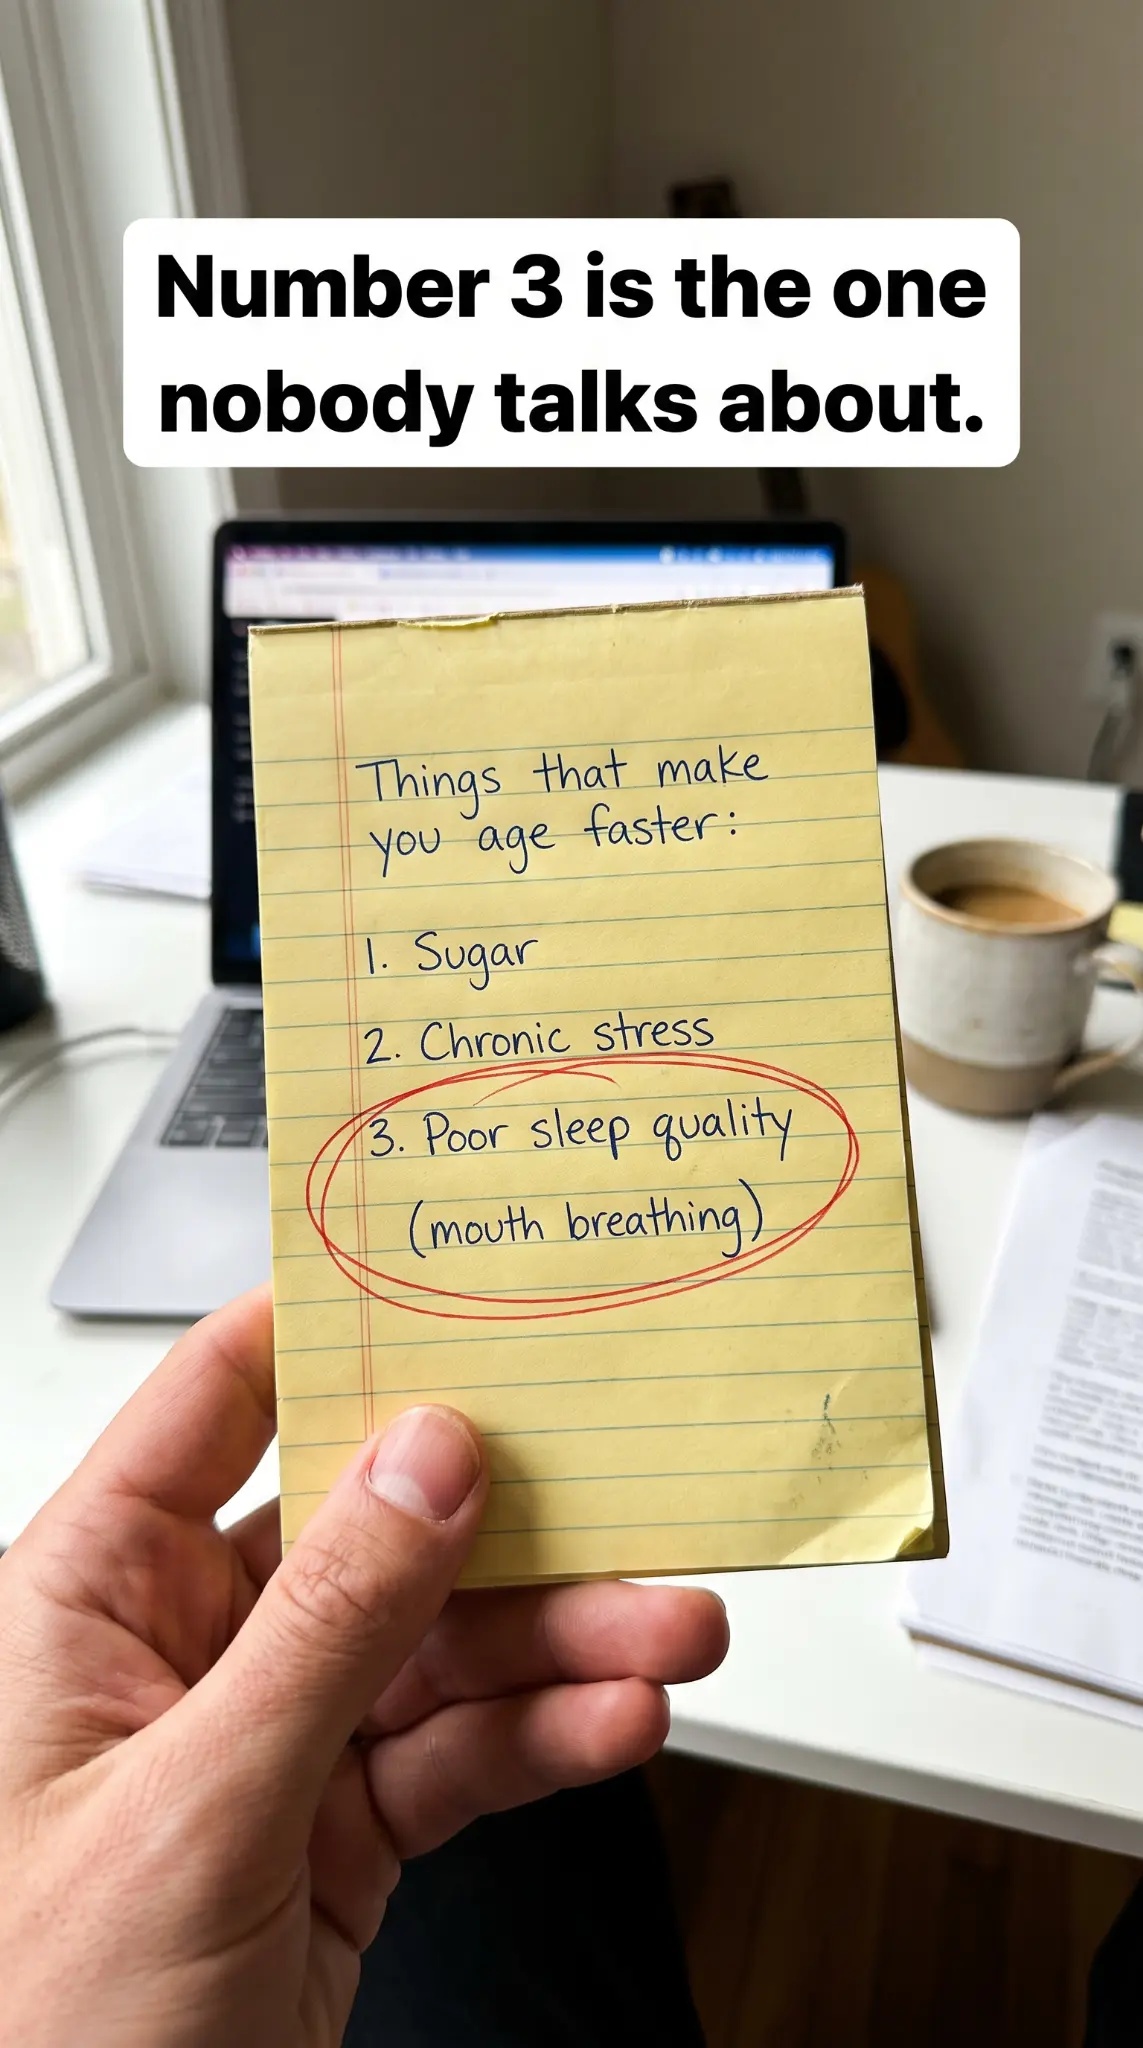 Number 3 is the one
nobody talks about.
Things that make
you age faster:
1. Sugar
2. Chronic stress
3. Poor sleep quality
(mouth breathing)